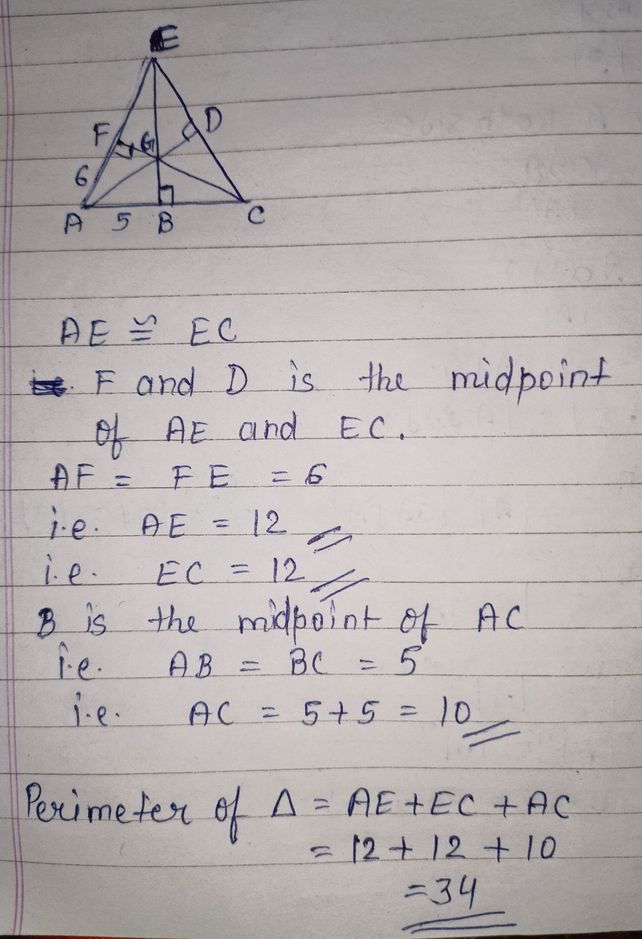 E
F G D
6
A 5 B C
AE ≅ EC
F and D is the midpoint
of AE and EC.
AF = FE = 6
i.e. AE = 12
i.e. EC = 12
B is the midpoint of AC
i.e. AB = BC = 5
i.e. AC = 5+5 = 10
Perimeter of Δ = AE+EC+AC
= 12+12+10
=34